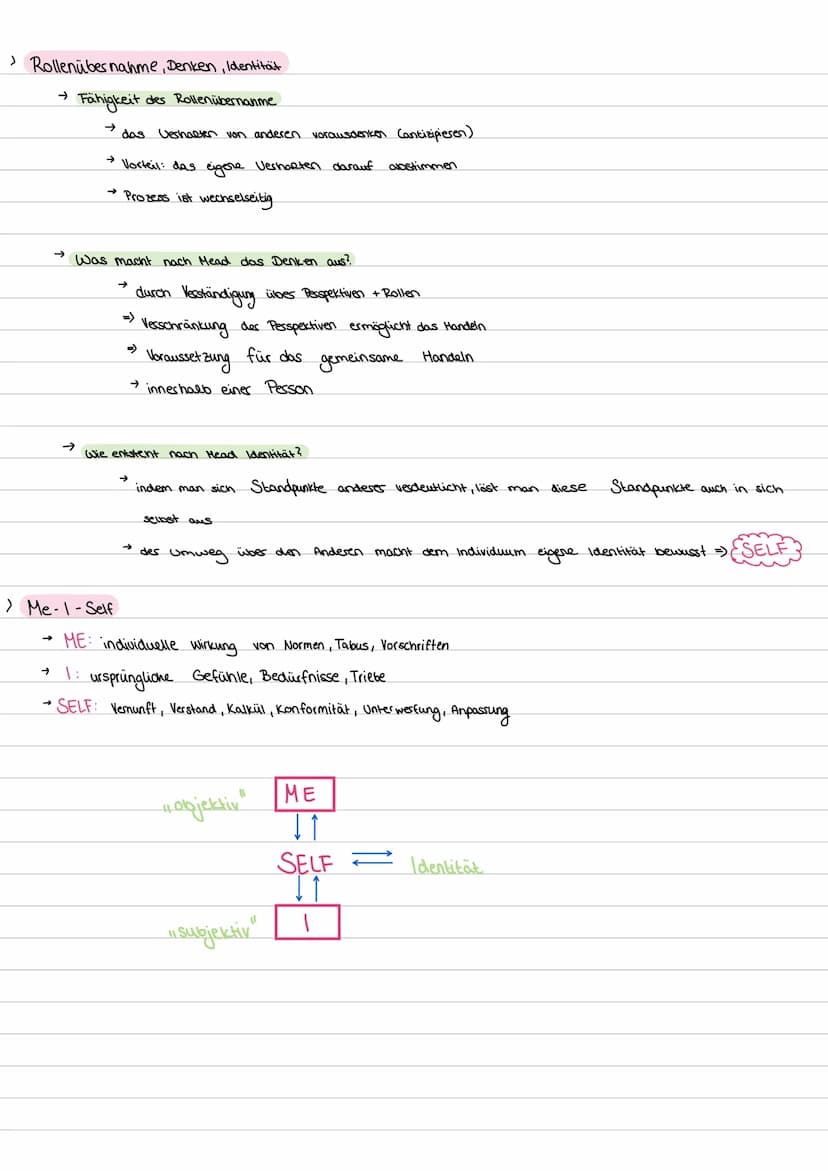 > Rollenübernahme, Denken, Identität
→ Fähigkeit der Rollenübernahme
→ das Verhalten von anderen vorausdenken (antizipieren)
→ Vorteil: das eigene Verhalten darauf abstimmen
→ Prozess ist wechselseitig
→ Was macht nach Mead das Denken aus?
→ durch Verständigung über Perspektiven + Rollen
⇒ Verschränkung der Perspektiven ermöglicht das Handeln
⇒ Voraussetzung für das gemeinsame Handeln
→ innerhalb einer Person
→ Wie entsteht nach Mead Identität?
→ indem man sich Standpunkte anderer verdeutlicht, löst man diese Standpunkte auch in sich
selbst aus
→ der Umweg über den Anderen macht dem Individuum eigene Identität bewusst ⇒ SELF
> Me - I - Self
→ ME: individuelle Wirkung von Normen, Tabus, Vorschriften
→ I: ursprüngliche Gefühle, Bedürfnisse, Triebe
→ SELF: Vernunft, Verstand, Kalkül, Konformität, Unterwerfung, Anpassung
„objektiv" ME
SELF Identität
„subjektiv" I